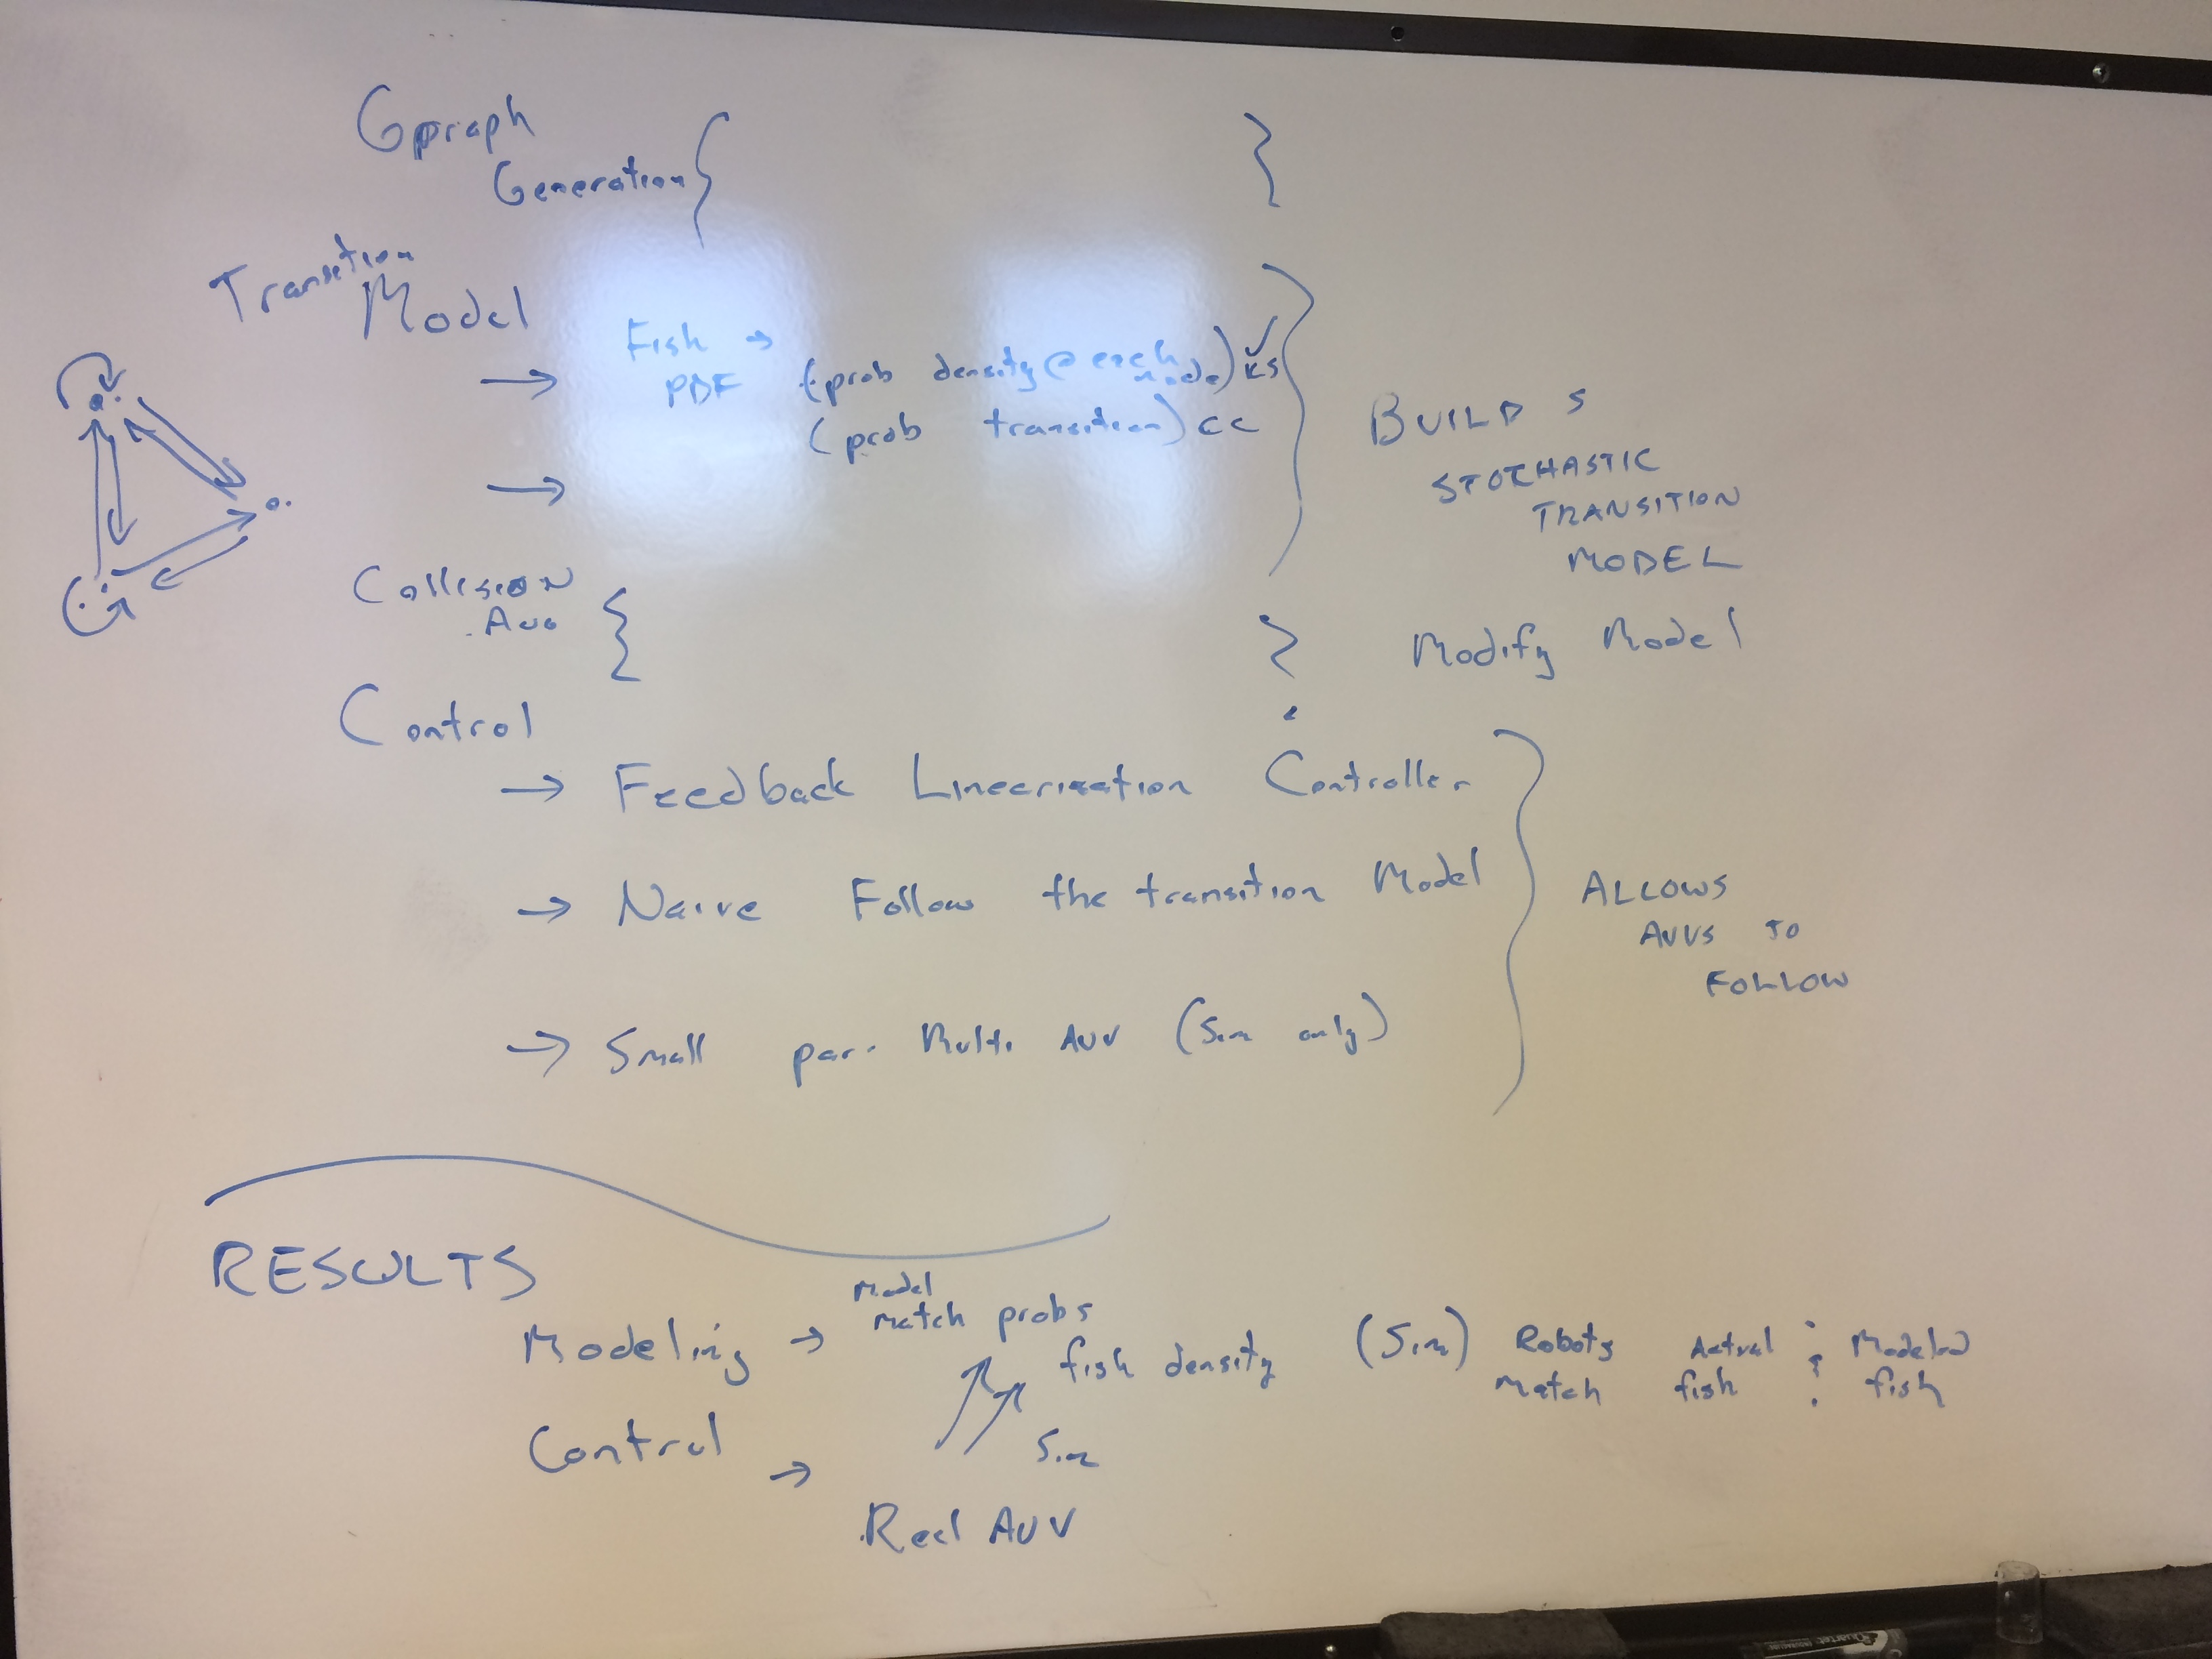 Gpraph
Generation {
}
Transition
Model
→ Fish →
PDF (prob density @ each node) KS
(prob transition) CC
→
BUILDS
STOCHASTIC
TRANSITION
MODEL
Collision
Avo {
} Modify Model
Control
→ Feedback Linearization Controller
→ Naive Follow the transition Model
→ Small par. Multi AUV (Sim only)
ALLOWS
AUVS TO
FOLLOW
RESULTS
Modeling → Model
match probs
fish density
(Sim) Robots
match
Actual
fish
Modeled
fish
Control →
Sim
Real AUV